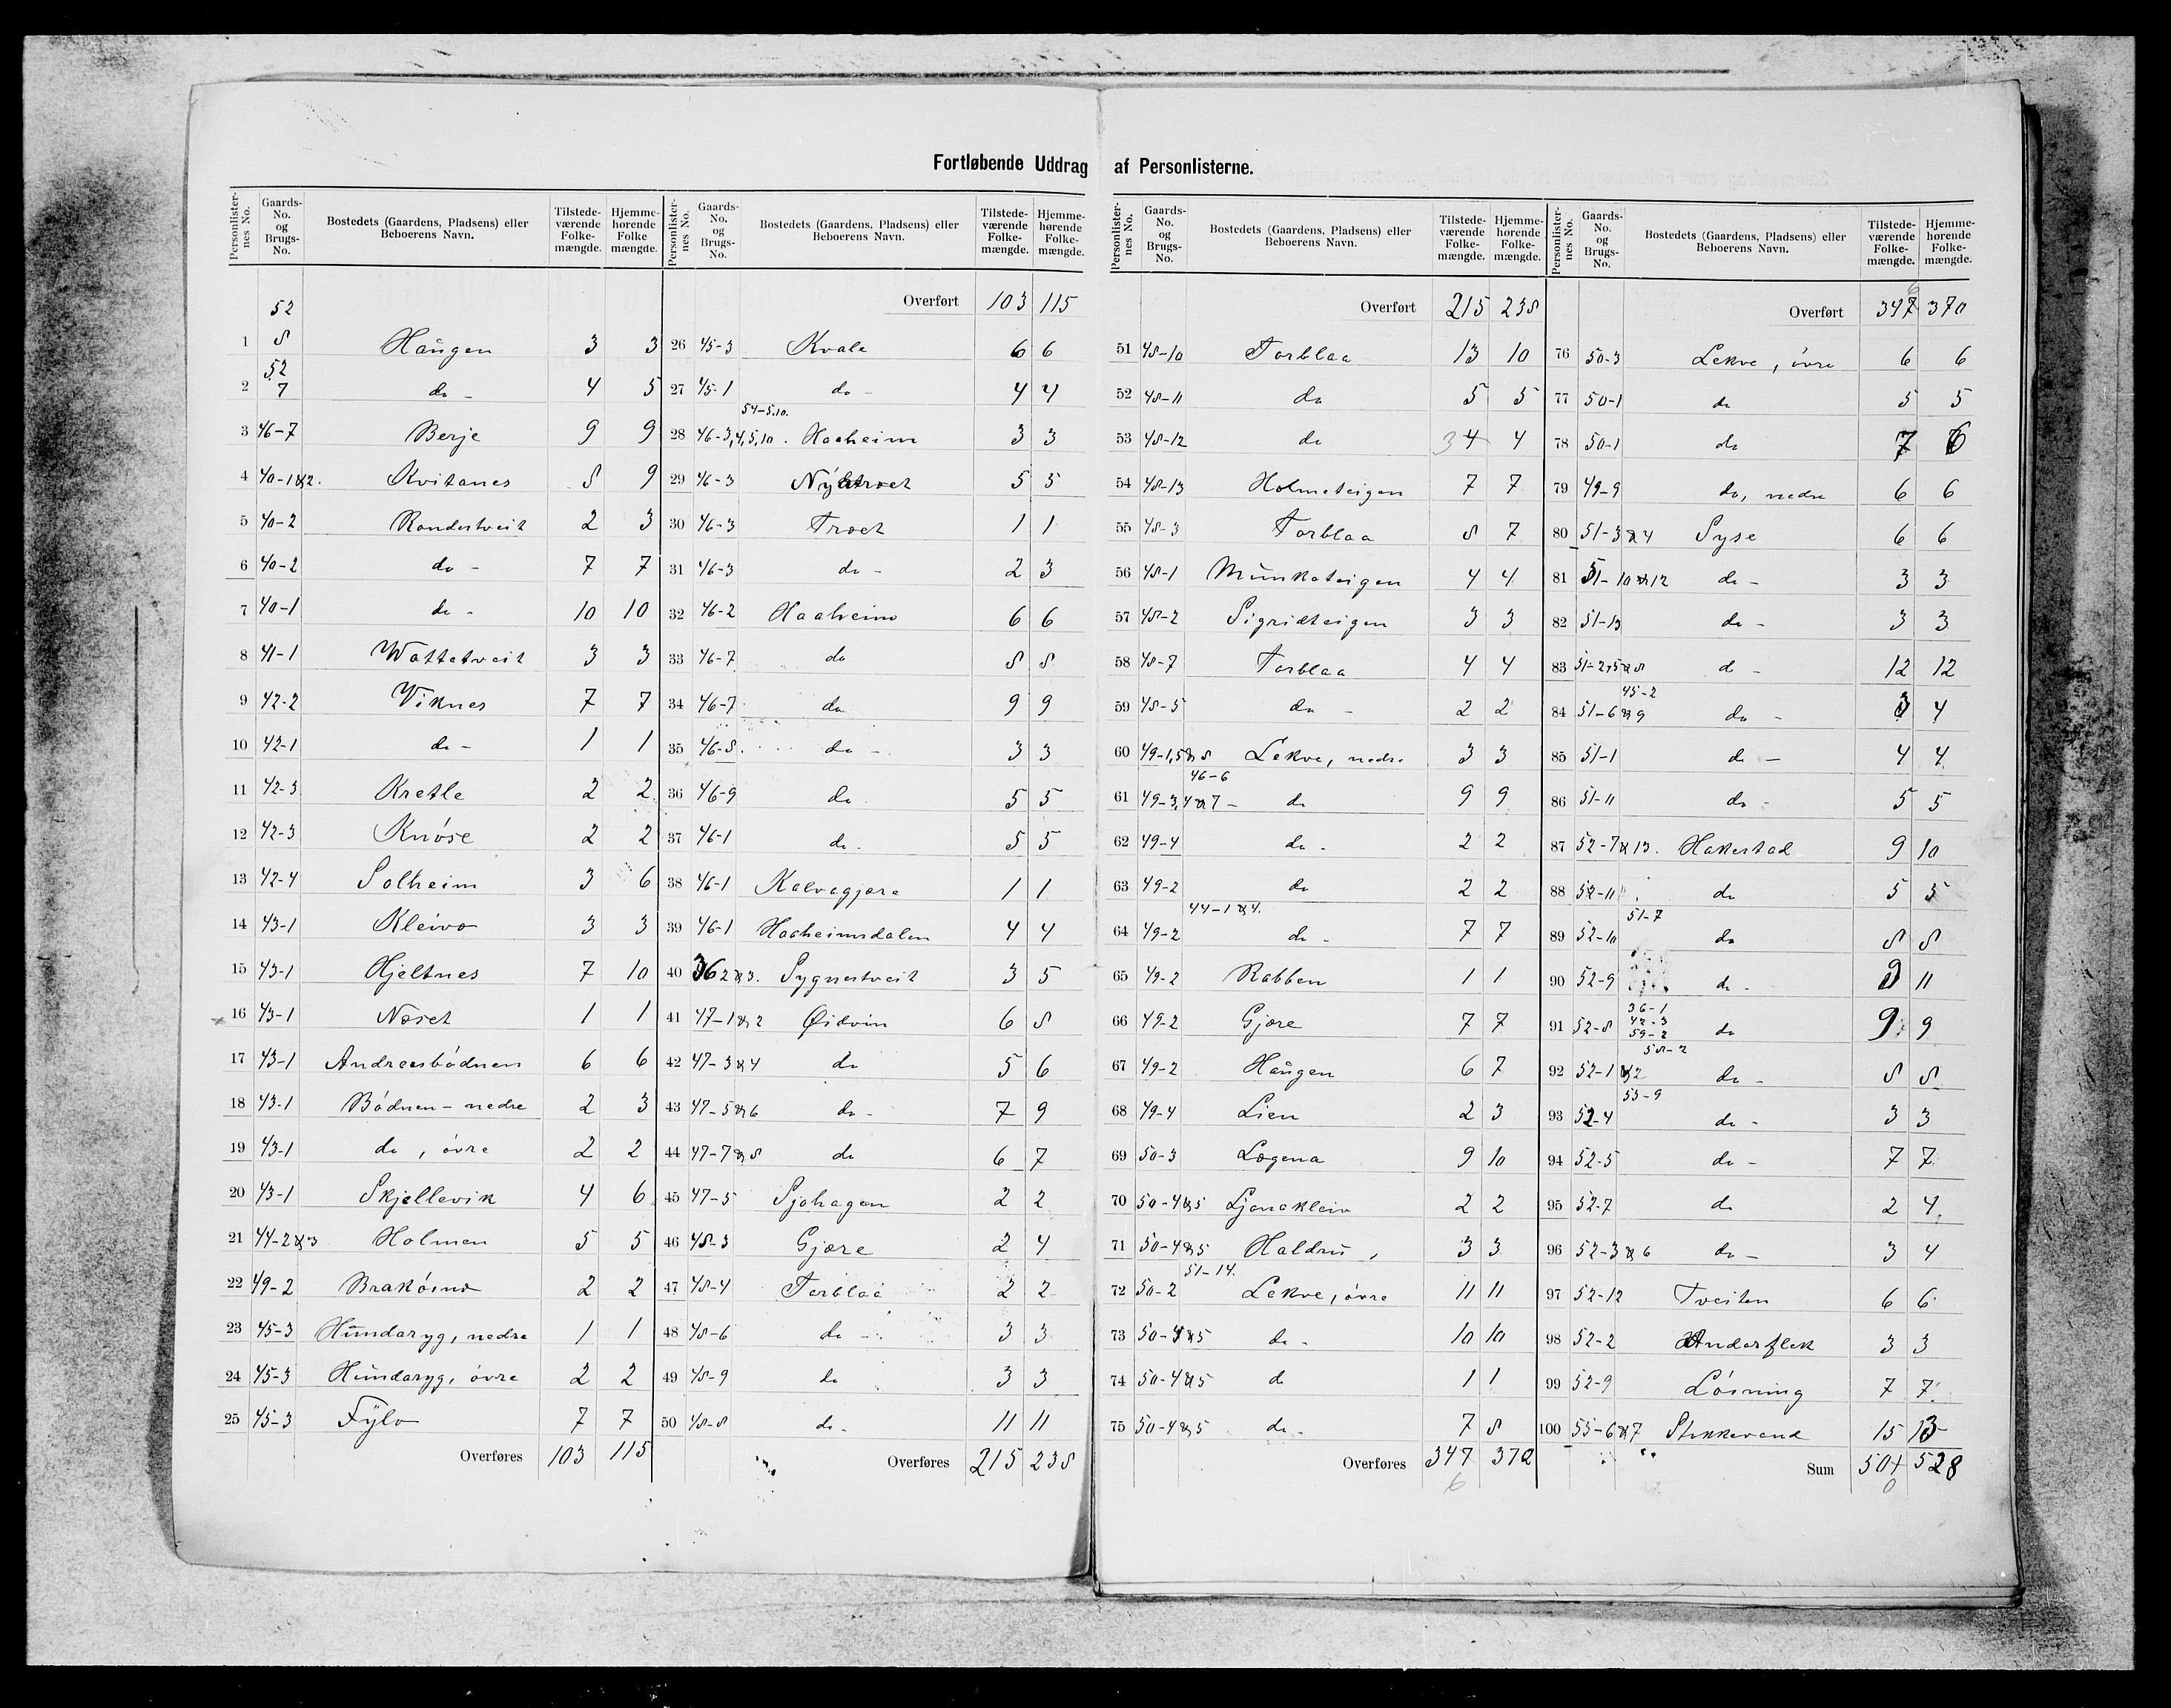 Fortløbende Uddrag af Personlisterne.
Personlister-nes No. Gaards-No. og Brugs-No. Bostedets (Gaardens, Pladsens) eller Beboerens Navn. Tilstede-værende Folke-mængde. Hjemme-hørende Folke mængde.
52
1 8 Haugen 3 3
52
2 7 do - 4 5
3 46-7 Berje 9 9
4 40-1&2. Kvitanes 8 9
5 40-2 Rondestveit 2 3
6 40-2 do - 7 7
7 40-1 do - 10 10
8 41-1 Wattetveit 3 3
9 42-2 Viknes 7 7
10 42-1 do - 1 1
11 42-3 Kretle 2 2
12 42-3 Knöse 2 2
13 42-4 Solheim 3 6
14 43-1 Kleivo 3 3
15 43-1 Hjeltnes 7 10
16 43-1 Næset 1 1
17 43-1 Andreasbödnen 6 6
18 43-1 Bödnen - nedre 2 3
19 43-1 do , övre 2 2
20 43-1 Skjellevik 4 6
21 44-2&3 Holmen 5 5
22 49-2 2 2
23 45-3 Hundaryg, nedre 1 1
24 45-3 Hundaryg, övre 2 2
25 45-3 Fylo 7 7
Overføres 103 115
Personlister-nes No. Gaards-No. og Brugs-No. Bostedets (Gaardens, Pladsens) eller Beboerens Navn. Tilstede-værende Folke-mængde. Hjemme-hørende Folke-mængde.
Overført 103 115
26 45-3 Kvale 6 6
27 45-1 do - 4 4
54-5,10.
28 46-3,4,5,10. Haaheim 3 3
29 46-3 5 5
30 46-3 Træet 1 1
31 46-3 do - 2 3
32 46-2 Haaheim 6 6
33 46-7 do 8 8
34 46-7 do 9 9
35 46-8. do - 3 3
36 46-9 do 5 5
37 46-1 do. 5 5
38 46-1 Kalvagjære 1 1
39 46-1 Haaheimsdalen 4 4
40 362&3. Sygnestveit 3 5
41 47-1&2 Øidvin 6 8
42 47-3&4 do 5 6
43 47-5&6 do - 7 9
44 47-7&8 do 6 7
45 47-5 Sjohagen 2 2
46 48-3 Gjære 2 4
47 48-4 Torblaa 2 2
48 48-6 do - 3 3
49 48-9 do 3 3
50 48-8 do - 11 11
Overføres 215 238
Personlister-nes No. Gaards-No. og Brugs-No. Bostedets (Gaardens, Pladsens) eller Beboerens Navn. Tilstede-værende Folke-mængde. Hjemme-hørende Folke-mængde.
Overført 215 238
51 48-10 Torblaa 13 10
52 48-11 do 5 5
53 48-12 do 3 4 4
54 48-13 Holmeteigen 7 7
55 48-3 Torblaa 8 7
56 48-1 Munketeigen 4 4
57 48-2 Sigridteigen 3 3
58 48-7 Torblaa 4 4
59 48-5 do - 2 2
60 49-1,5&8 Lekve, nedre 3 3
46-6
61 49-3,4&7 - do 9 9
62 49-4 do - 2 2
63 49-2 do 2 2
44-1&4.
64 49-2 do - 7 7
65 49-2 Rabben 1 1
66 49-2 Gjære 7 7
67 49-2 Haugen 6 7
68 49-4 Lien 2 3
69 50-3 Lægena 9 10
70 50-4&5 Ljonakleiv 2 2
71 50-4&5 3 3
51-14.
72 50-2 Lekve, övre 11 11
73 50-4&5 do - 10 10
74 50-4&5 do 1 1
75 50-4&5 do - 7 8
Overføres 347 370
6
Personlister-nes No. Gaards-No. og Brugs-No. Bostedets (Gaardens, Pladsens) eller Beboerens Navn. Tilstede-værende Folke-mængde. Hjemme-hørende Folke-mængde.
6
Overført 347 370
76 50-3 Lekve, övre 6 6
77 50-1 do 5 5
78 50-1 do 7 6
79 49-9 do, nedre 6 6
80 51-3&4 Syse 6 6
81 51-10&12 do - 3 3
82 51-13 do - 3 3
83 51-2,5&8 do - 12 12
45-2
84 51-6&9 do - 3 4
85 51-1 do - 4 4
86 51-11 do - 5 5
87 52-7&13. Hakestad 9 10
88 52-11 do 5 5
51-7
89 52-10 do 8 8
90 52-9 do - 9 11
36-1
42-3
91 52-8 do 9 9
59-2
58-2
92 52-1&2 do - 8 8
55-9
93 52-4 do - 3 3
94 52-5 do - 7 7
95 52-7 do 2 4
96 52-3&6 do - 3 4
97 52-12 Tveiten 6 6
98 52-2 Anderflek 3 3
99 52-9 Lösning 7 7
100 55-6&7 15 13
Sum 501 528
0